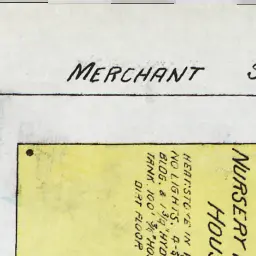 MERCHANT S
NURSERY
HOU
HEAT: STOVE IN
NO LIGHTS.
BLDG. & 1 3/4" HYD
TANK. 100'
DIRT FLOOR